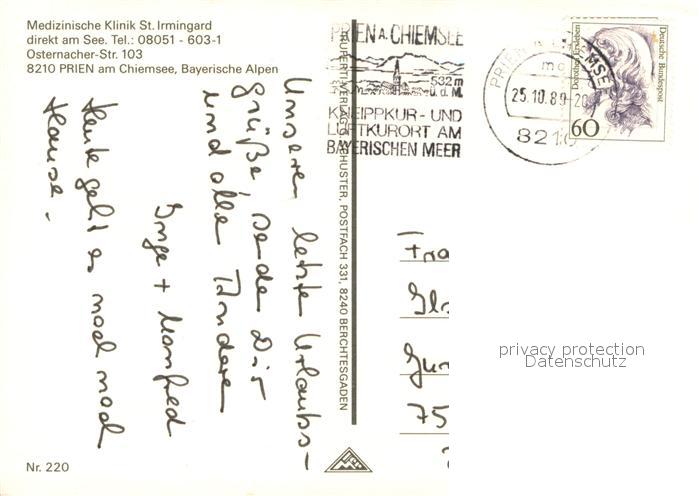 Medizinische Klinik St. Irmingard
direkt am See. Tel.: 08051 - 603-1
Osternacher-Str. 103
8210 PRIEN am Chiemsee, Bayerische Alpen
PRIEN A. CHIEMSEE
532 m
ü. d. M.
KNEIPPKUR - UND
LUFTKURORT AM
BAYERISCHEN MEER
PRIEN
25.10.89-20
821
Deutsche Bundespost
60
Unseren letzten Urlaubs-
grüße sende Dir
und alle Anderen
Inge + Manfred
Heute geht es noch nach
Hause.
RUPERTI-VERLAG SCHUSTER, POSTFACH 331, 8240 BERCHTESGADEN
75
privacy protection
Datenschutz
Nr. 220